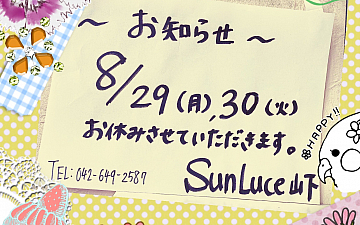 ～お知らせ～
8/29(月),30(火)
お休みさせていただきます。
TEL: 042-649-2587
SunLuce山下
HAPPY!!